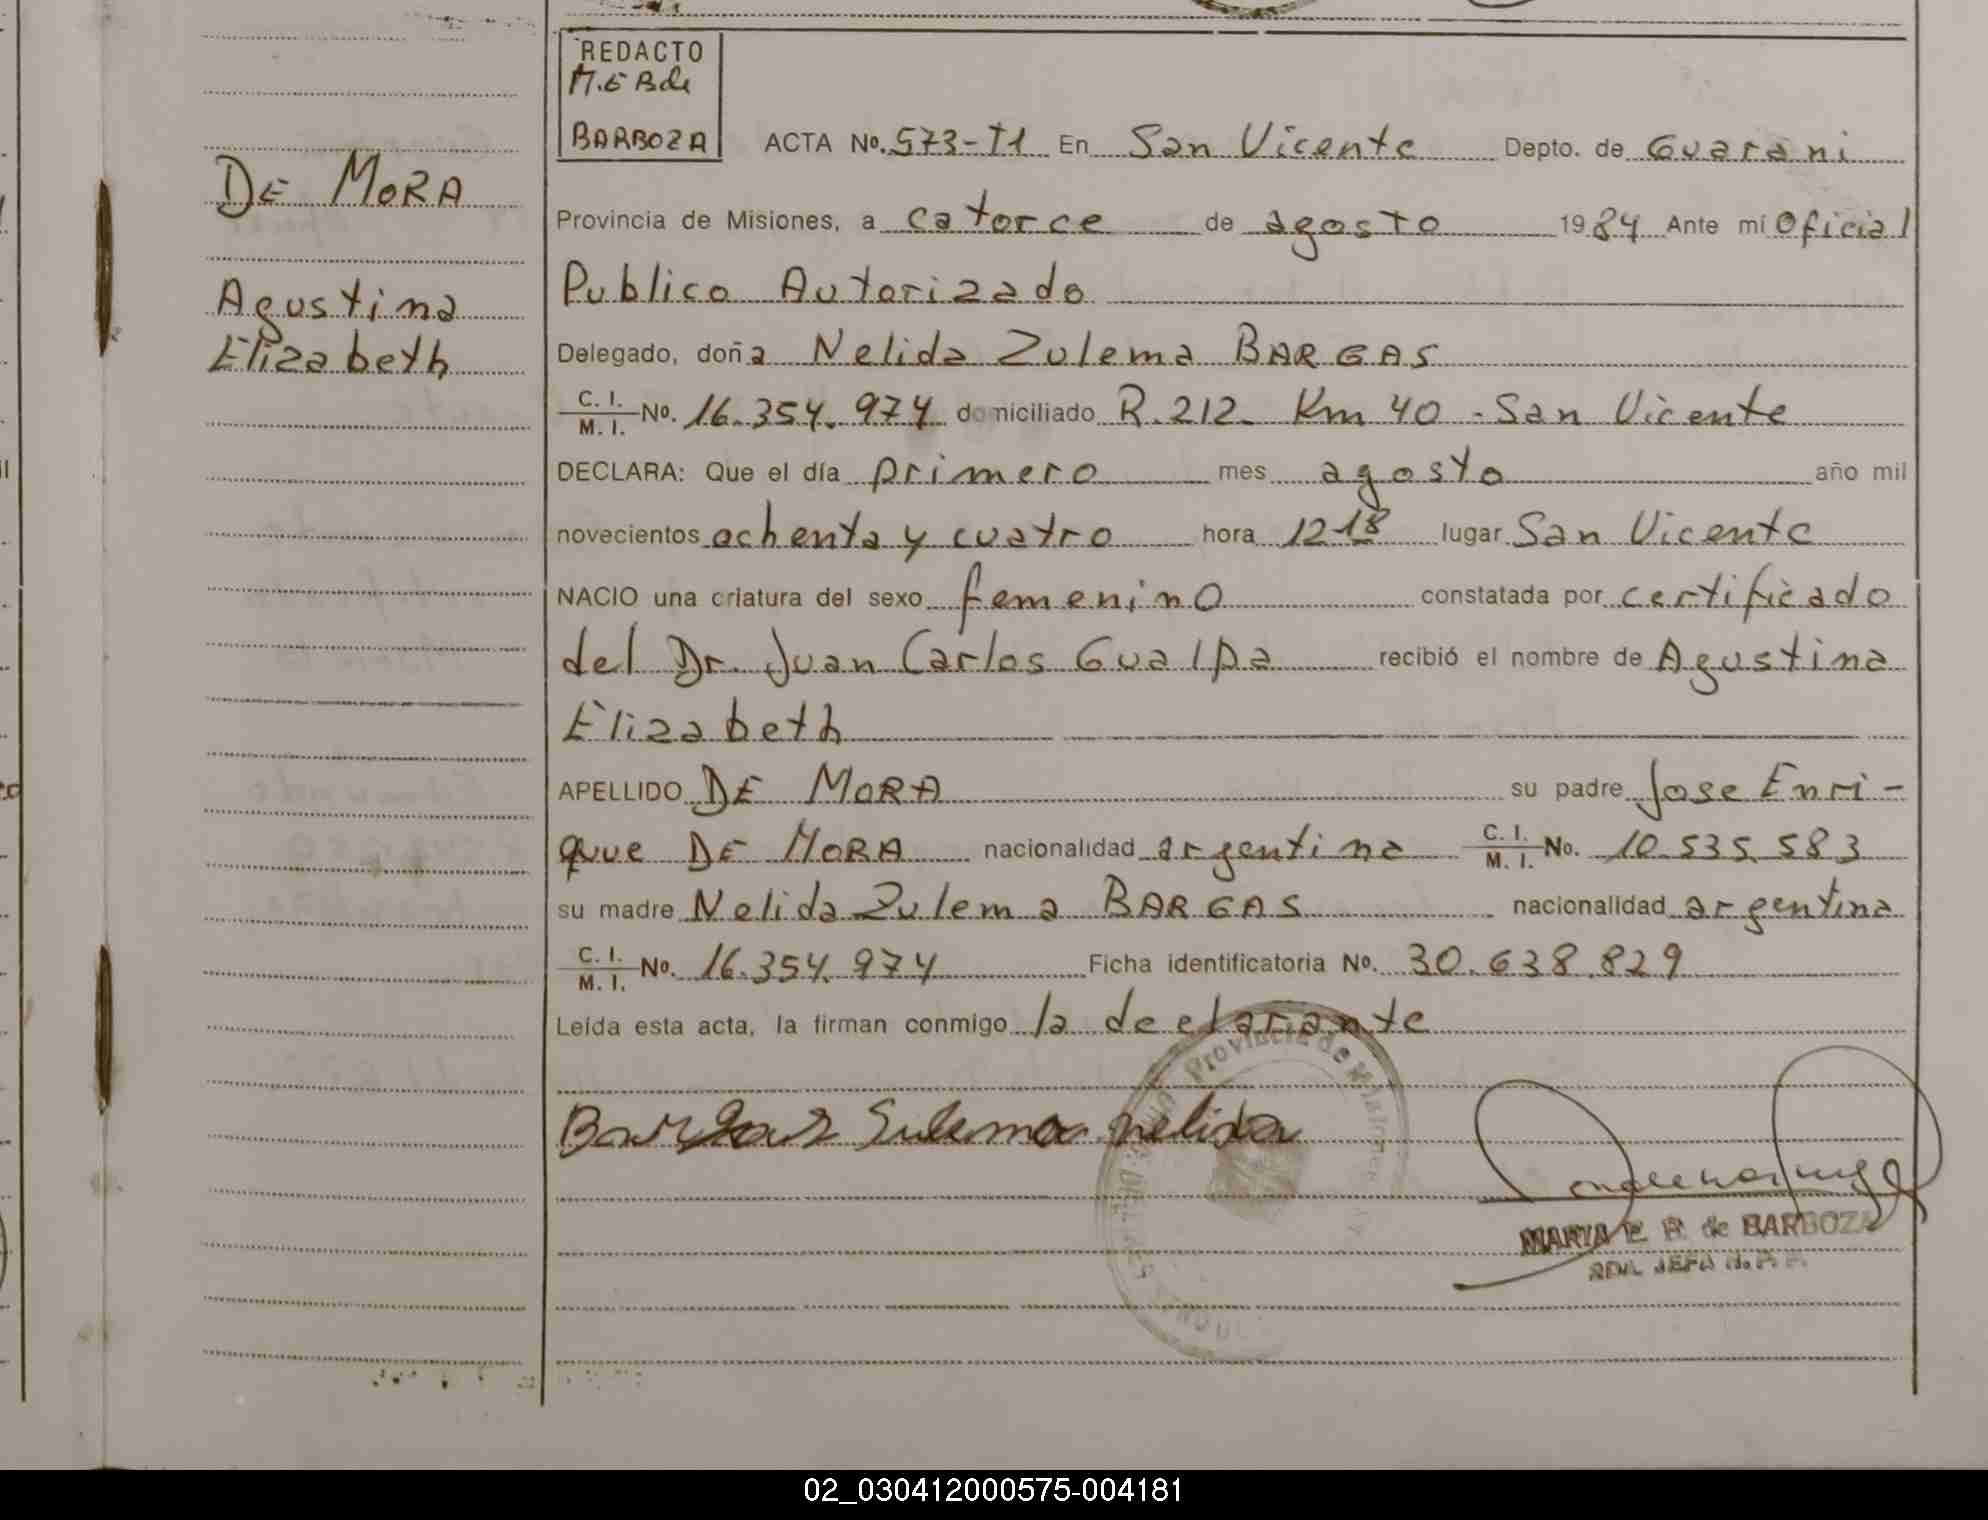 REDACTO
M.E B de
BARBOZA
ACTA No. 573-T1 En San Vicente Depto. de Guarani
DE MORA
Provincia de Misiones, a catorce de agosto 1984 Ante mí Oficial
Publico Autorizado
Agustina
Elizabeth
Delegado, doña Nelida Zulema BARGAS
C. I.
M. I. No. 16.354.974 domiciliado R.212. Km 40 - San Vicente
DECLARA: Que el día primero mes agosto año mil
novecientos ochenta y cuatro hora 12-18 lugar San Vicente
NACIO una criatura del sexo femenino constatada por certificado
del Dr. Juan Carlos Gualpa recibió el nombre de Agustina
Elizabeth
APELLIDO DE MORA su padre Jose Enri-
que DE MORA nacionalidad argentina C. I. M. I. No. 10.535.583
su madre Nelida Zulema BARGAS nacionalidad argentina
C. I.
M. I. No. 16.354.974 Ficha identificatoria No. 30.638.829
Leída esta acta, la firman conmigo la declarante
Provincia de Misiones
Bargas Sulema nelida
MARIA E. B. de BARBOZA
02_030412000575-004181